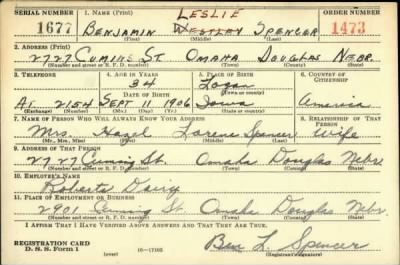 SERIAL NUMBER 1. NAME (Print) LESLIE ORDER NUMBER
1677 BENJAMIN WESTLEY SPENCER 1473
(First) (Middle) (Last)
2. ADDRESS (Print)
2727 CUMING ST. OMAHA DOUGLAS NEBR.
(Number and street or R. F. D. number) (Town) (County) (State)
3. TELEPHONE 4. AGE IN YEARS 5. PLACE OF BIRTH 6. COUNTRY OF CITIZENSHIP
34 Logan
DATE OF BIRTH (Town or county)
AT. 2154 SEPT 11 1906 Iowa America
(Exchange) (Number) (Mo.) (Day) (Yr.) (State or country)
7. NAME OF PERSON WHO WILL ALWAYS KNOW YOUR ADDRESS 8. RELATIONSHIP OF THAT PERSON
Mrs. Hazel Lorene Spencer Wife
(Mr., Mrs., Miss) (First) (Middle) (Last)
9. ADDRESS OF THAT PERSON
2727 Cuming St. Omaha Douglas Nebr.
(Number and street or R. F. D. number) (Town) (County) (State)
10. EMPLOYER'S NAME
Roberts Dairy
11. PLACE OF EMPLOYMENT OR BUSINESS
2901 Cuming St. Omaha Douglas Nebr.
(Number and street or R. F. D. number) (Town) (County) (State)
I AFFIRM THAT I HAVE VERIFIED ABOVE ANSWERS AND THAT THEY ARE TRUE.
REGISTRATION CARD
D. S. S. Form 1 (over) 16-17105 Ben L. Spencer
(Registrant's signature)